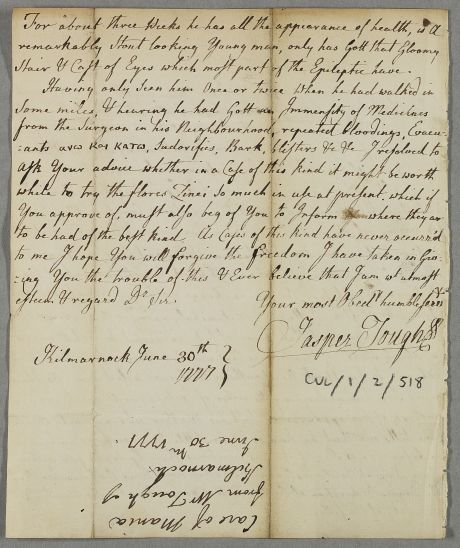 For about three Weeks he has all the appearance of health, is a
remarkably Stout looking Young man, only has Gott that Gloomy
Stair & Cast of Eyes which most part of the Epileptic have.
Having only Seen him Once or twice when he had walked in
Some miles, & hearing he had Gott an Immensity of Medicines
from the Surgeon in his Neighbourhood, repeated bloodings, Evacu=
=ants ανω και κατω, Sudorifics, Bark, blisters &c &c I resolved to
ask Your advice whether in a Case of this kind it might be worth
while to try the flores Zinci So much in use at present, which if
You approve of, must also beg of You to Inform where they are
to be had of the best kind. As Cases of this kind have never occurr'd
to me I hope You will forgive the freedom I have taken in Giv=
=ing You the trouble of this & Ever believe that I am wt utmost
esteem & regard Dr Sir.
Your most Obedt humble Servt
Jasper Tough
Kilmarnock June 30th
1777
CUL/1/2/518
Case of Mania
from Mr Tough of
Kilmarnock
June 30th 1777.